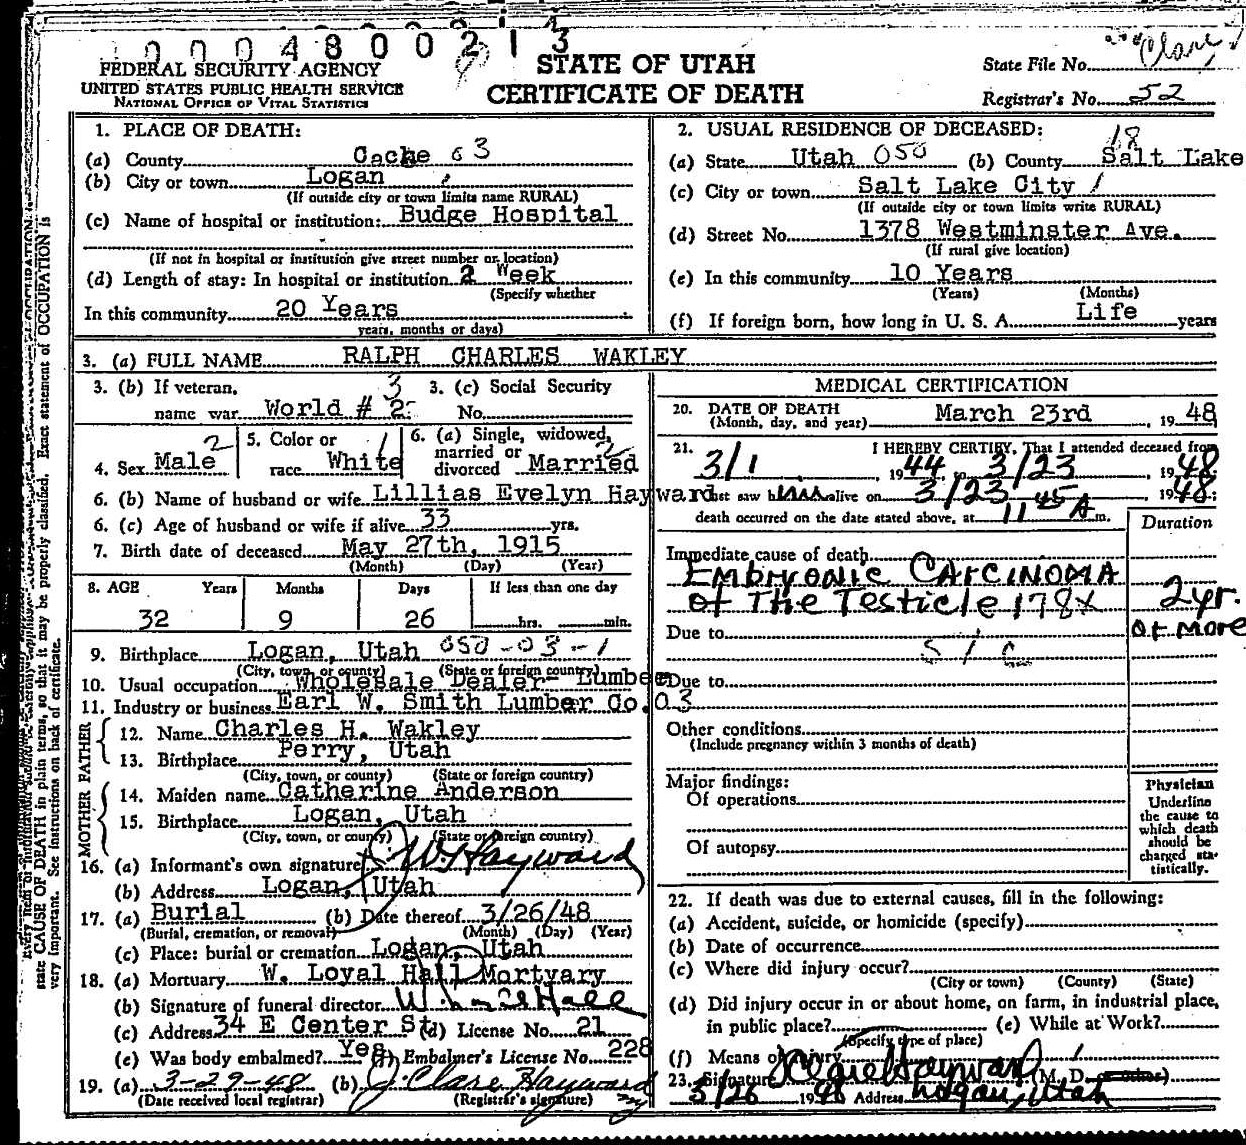 000480021 3
FEDERAL SECURITY AGENCY
UNITED STATES PUBLIC HEALTH SERVICE
NATIONAL OFFICE OF VITAL STATISTICS
STATE OF UTAH
CERTIFICATE OF DEATH
State File No.
Clare
Registrar's No. 52
1. PLACE OF DEATH:
(a) County Cache 03
(b) City or town Logan
(If outside city or town limits name RURAL)
(c) Name of hospital or institution: Budge Hospital
(If not in hospital or institution give street number or location)
(d) Length of stay: In hospital or institution 2 Week
(Specify whether
In this community 20 Years
years, months or days)
2. USUAL RESIDENCE OF DECEASED:
18
(a) State Utah 050 (b) County Salt Lake
(c) City or town Salt Lake City 1
(If outside city or town limits write RURAL)
(d) Street No. 1378 Westminster Ave.
(If rural give location)
(e) In this community 10 Years
(Years) (Months)
(f) If foreign born, how long in U. S. A. Life years
3. (a) FULL NAME RALPH CHARLES WAKLEY
3. (b) If veteran, 3 3. (c) Social Security
name war World # 2 No.
2 5. Color or 1 6. (a) Single, widowed, 2
4. Sex Male race White married or
divorced Married
6. (b) Name of husband or wife Lillias Evelyn Hayward
6. (c) Age of husband or wife if alive 33 yrs.
7. Birth date of deceased May 27th, 1915
(Month) (Day) (Year)
8. AGE Years Months Days If less than one day
32 9 26 hrs. min.
9. Birthplace Logan, Utah 050-03-1
(City, town, or county) (State or foreign country)
10. Usual occupation Wholesale Dealer Lumber
11. Industry or business Earl W. Smith Lumber Co. 03
FATHER
12. Name Charles H. Wakley
13. Birthplace Perry, Utah
(City, town, or county) (State or foreign country)
MOTHER
14. Maiden name Catherine Anderson
15. Birthplace Logan, Utah
(City, town, or county) (State or foreign country)
16. (a) Informant's own signature J. W. Hayward
(b) Address Logan, Utah
17. (a) Burial (b) Date thereof 3/26/48
(Burial, cremation, or removal) (Month) (Day) (Year)
(c) Place: burial or cremation Logan, Utah
18. (a) Mortuary W. Loyal Hall Mortvary
(b) Signature of funeral director W. Loyal Hall
(c) Address 34 E Center St. (d) License No. 21
(e) Was body embalmed? Yes (f) Embalmer's License No. 228
19. (a) 3-29-48 (b) J. Clare Hayward
(Date received local registrar) (Registrar's signature)
MEDICAL CERTIFICATION
20. DATE OF DEATH March 23rd, 19 48
(Month, day, and year)
21. I HEREBY CERTIFY, That I attended deceased from
3/1 19 44 to 3/23, 19 48
last saw him alive on 3/23, 19 48;
death occurred on the date stated above, at 11 45 A m.
Duration
Immediate cause of death
Embryonic Carcinoma
of The Testicle 178x 2 yr.
or more
Due to
51c
Due to
Other conditions
(Include pregnancy within 3 months of death)
Major findings:
Of operations
Of autopsy
Physician
Underline
the cause to
which death
should be
charged sta-
tistically.
22. If death was due to external causes, fill in the following:
(a) Accident, suicide, or homicide (specify)
(b) Date of occurrence
(c) Where did injury occur?
(City or town) (County) (State)
(d) Did injury occur in or about home, on farm, in industrial place,
in public place? (e) While at Work?
(Specify type of place)
(f) Means of injury
23. Signature J Clare Hayward (M. D. or other)
3/26 19 48 Address Logan, Utah
state CAUSE OF DEATH in plain terms, so that it may be properly classified. Exact statement of OCCUPATION is
very important. See instructions on back of certificate.